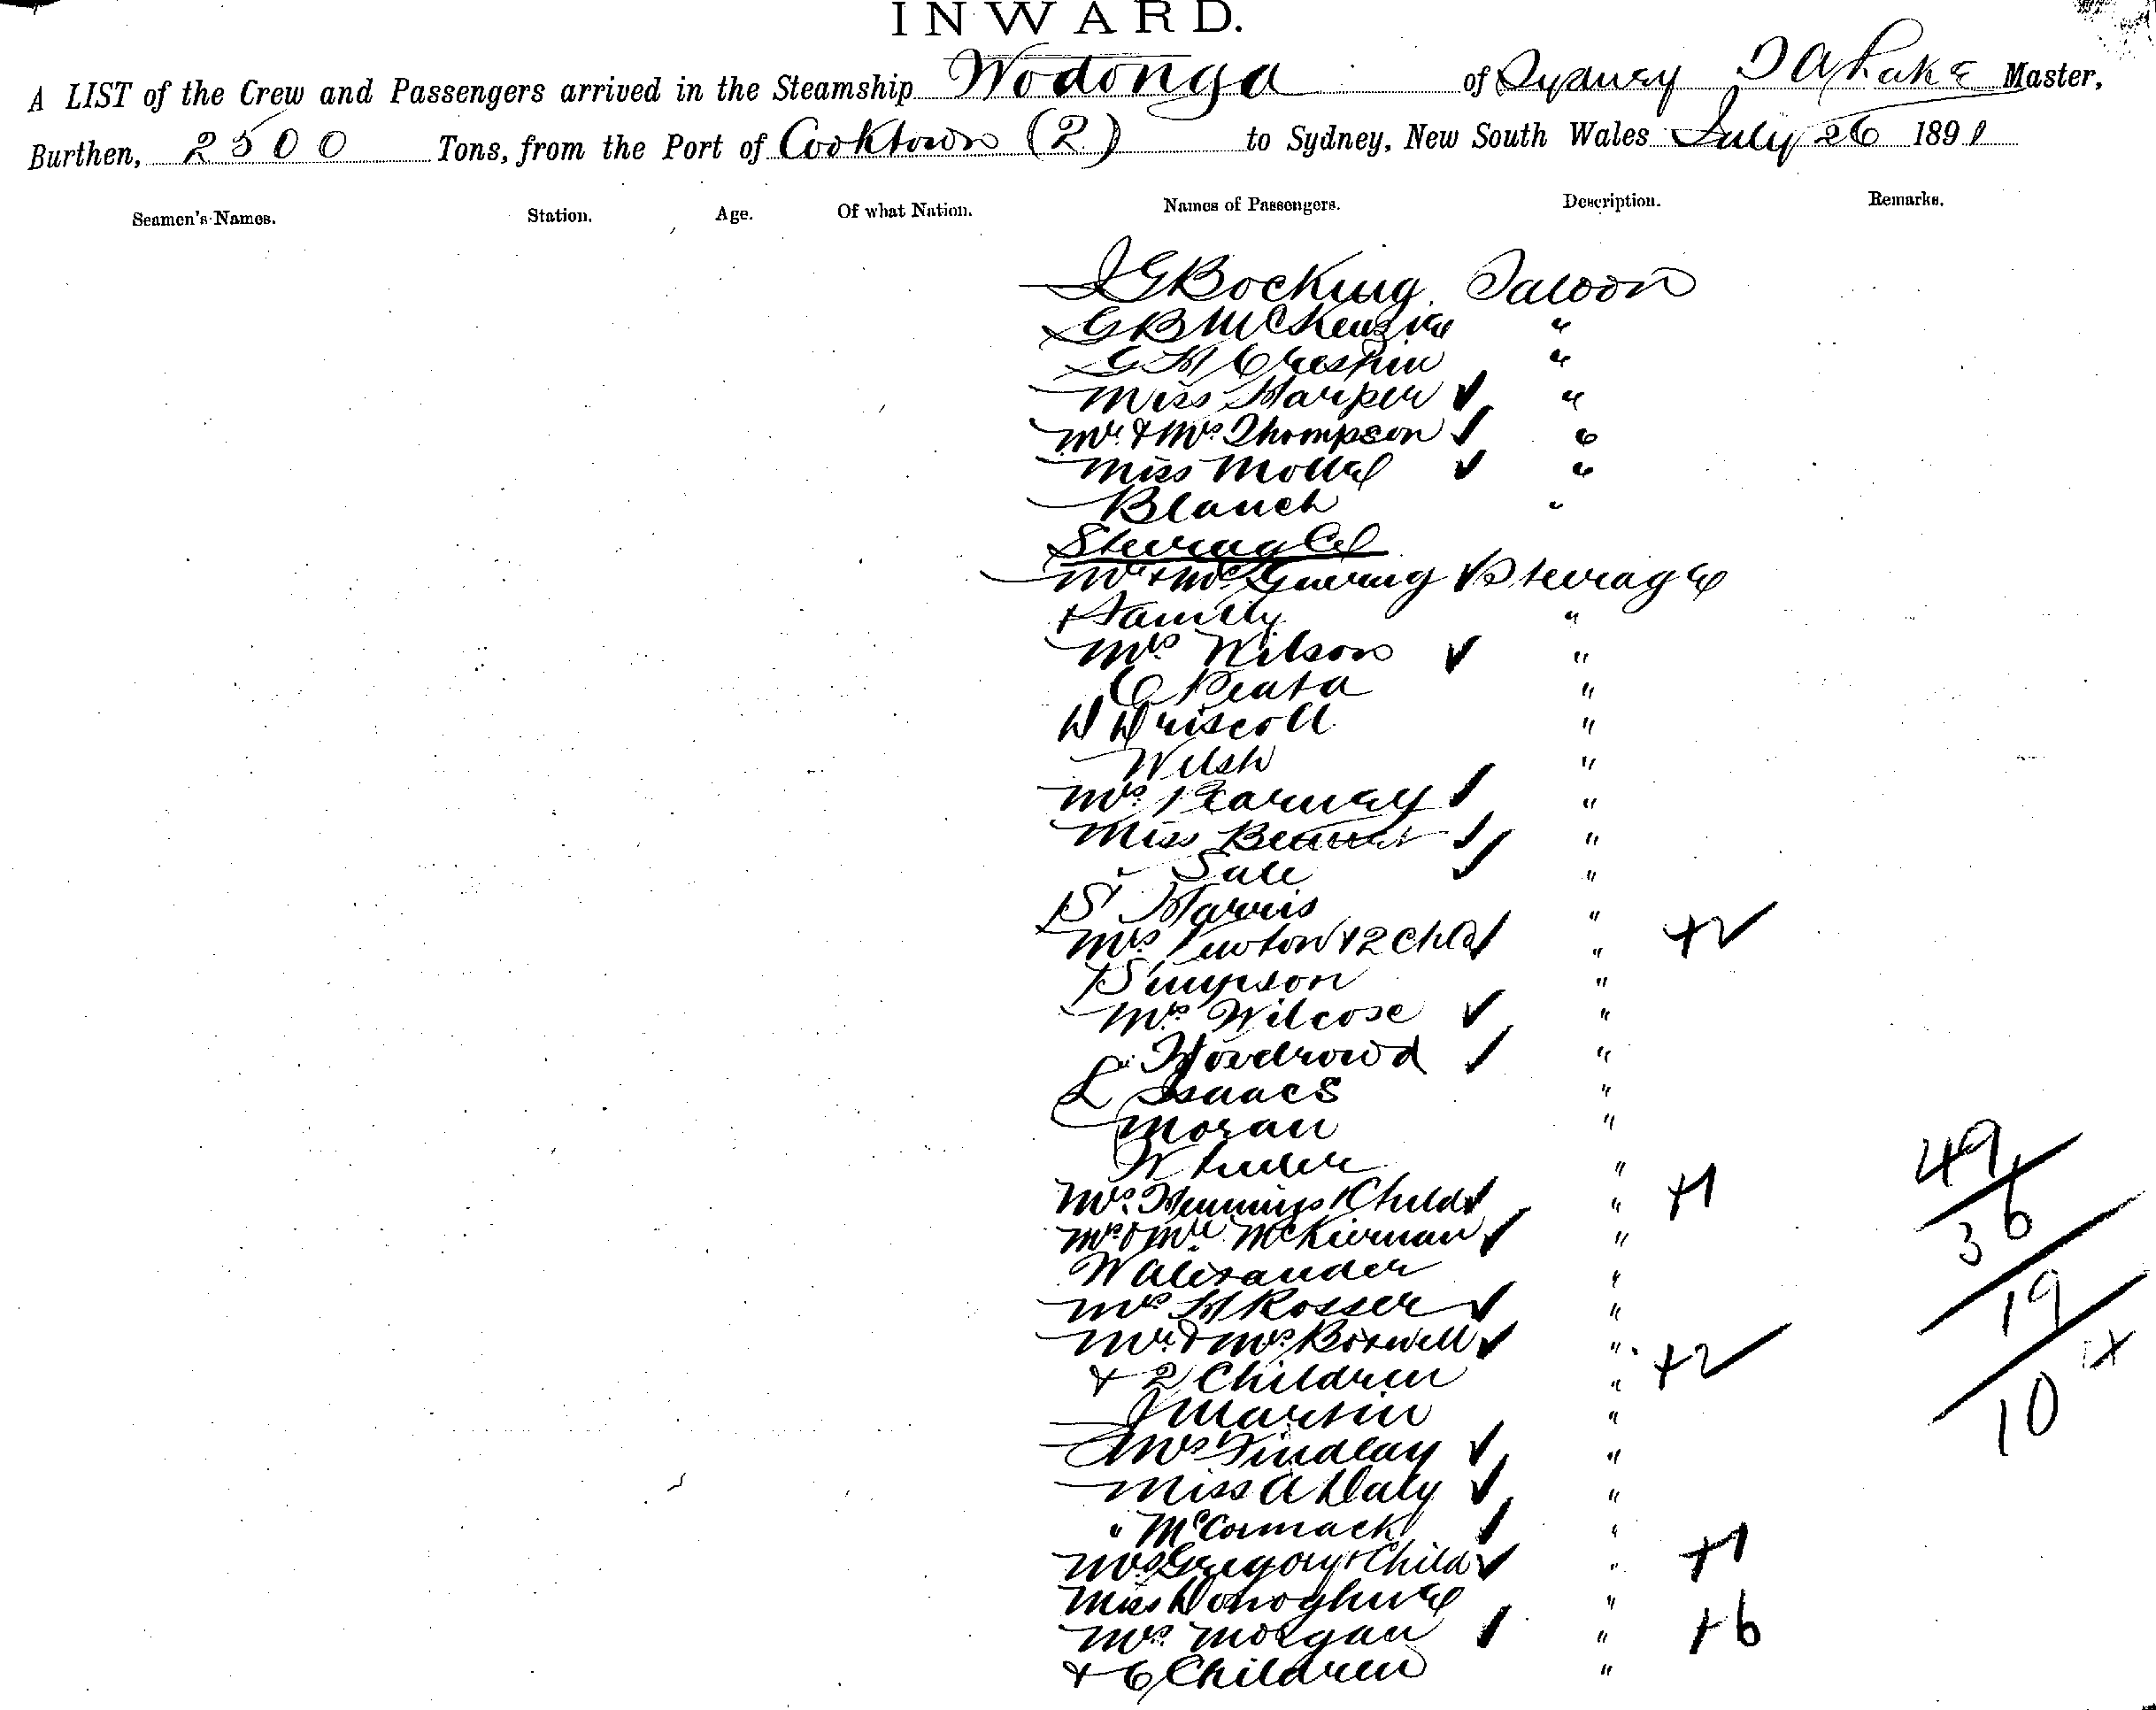 INWARD.
A LIST of the Crew and Passengers arrived in the Steamship Wodonga of Sydney Master,
Burthen, 2500 Tons, from the Port of Cooktown (2) to Sydney, New South Wales July 26 1891
Seamen's Names. Station. Age. Of what Nation. Names of Passengers. Description. Remarks.
J G Bocking. Saloon
G B McKenzie "
G H Crespin "
Miss Harper ✓ "
Mr & Mrs Thompson ✓ "
Miss ✓ "
Blanch "
Steerage
Mr & Mrs ✓ Steerage
& Family "
Mrs Wilson ✓ "
C "
D Driscoll "
Welsh "
Mrs Kearney ✓ "
Miss Bennet ✓ "
" Sale ✓ "
S Harris "
Mrs Newton & 2 Chld ✓ " +2
Simpson "
Mrs Wilcose ✓ "
" ✓ "
L Isaacs "
Moran "
Wheeler "
Mrs Hennings 1 Child ✓ " +1
Mrs & Mr McKiernan ✓ "
W Alexander "
Mrs H Rosser ✓ "
Mr & Mrs Boxwell ✓ "
& 2 Children " +2
J Martin "
Mrs Findlay ✓ "
Miss A Daly ✓ "
" McCormack ✓ "
Mrs Gregory & Child ✓ " +1
Miss Donoghue "
Mrs Morgan ✓ " +6
& 6 Children "
49
36
19
10